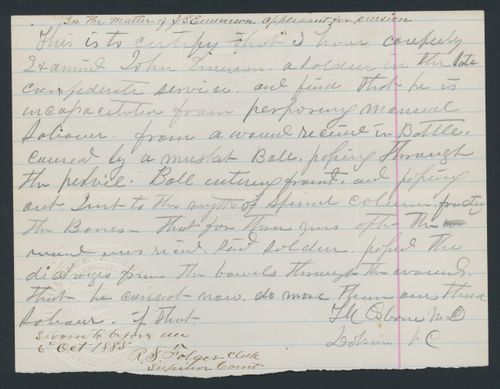 In the matter of J S Emerson applicant for pension
This is to certify that I have carefully
Examind John Emerson. a soldier in the late
confederate service. and find that he is
incapacitated from performing manual
labour. from a wound received in Battle.
caused by a muskat Ball. passing through
the pelvic. Ball entering front. and passing
out Just to the right of Spinal column
the Bones — that for three yrs after the
wound was said soldier. passed the
from the bowels through the wound.
that he cannot now. do more than one third
labour. if that
Sworn to before me
6 Oct 1885
R. S. Folger Clerk
Superior Court
M.D
Dobson N C